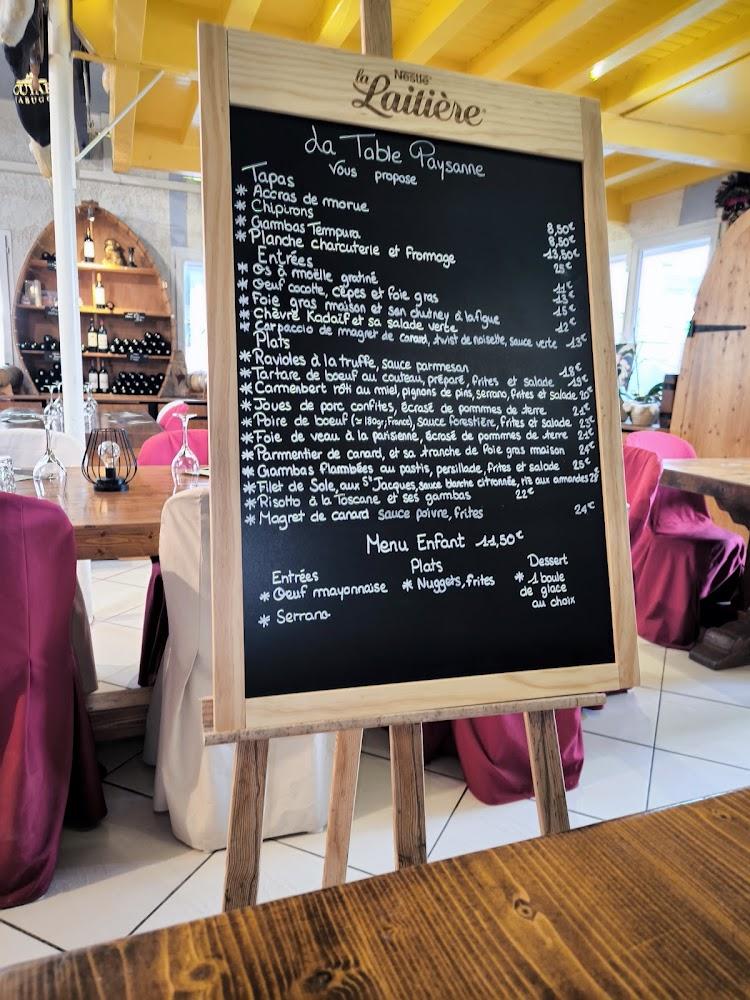 Nestlé
la Laitière
La Table Paysanne
Vous propose
Tapas
* Accras de morue 8,50€
* Chipirons 8,50€
* Gambas Tempura 13,50€
* Planche charcuterie et fromage 25€
Entrées
* Os à moëlle gratiné 11€
* Oeuf cocotte, cèpes et foie gras 13€
* Foie gras maison et son chutney à la figue 15€
* Chèvre Kadaïf et sa salade verte 12€
* Carpaccio de magret de canard, twist de noisette, sauce verte 13€
Plats
* Ravioles à la truffe, sauce parmesan 18€
* Tartare de boeuf au couteau, préparé, frites et salade 19€
* Camembert rôti au miel, pignons de pins, serrano, frites et salade 20€
* Joues de porc confites, écrasé de pommes de terre 21€
* Poire de boeuf (≃ 180gr, France), sauce forestière, frites et salade 23€
* Foie de veau à la parisienne, écrasé de pommes de terre 21€
* Parmentier de canard, et sa tranche de foie gras maison 24€
* Gambas flambées au pastis, persillade, frites et salade 25€
* Filet de Sole, aux St Jacques, sauce blanche citronnée, ris aux amandes
* Risotto à la Toscane et ses gambas 22€
* Magret de canard sauce poivre, frites 24€
Menu Enfant 11,50€
Entrées
* Oeuf mayonnaise
* Serrano
Plats
* Nuggets, frites
Dessert
* 1 boule
de glace
au choix